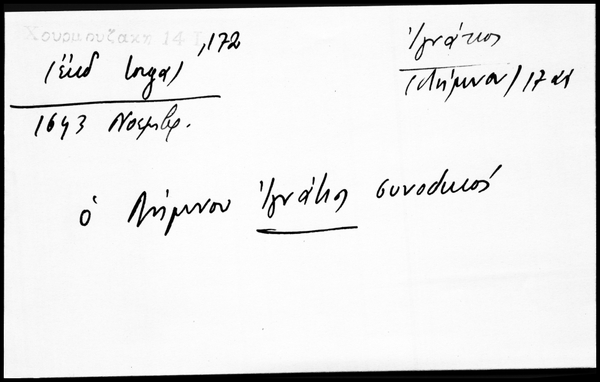 Χουρμουζάκη 14 I
,172
(ἔκδ Iorga)
1643 Νοεμβρ.
Ἰγνάτιος
(Λήμνου) 17
ὁ Λήμνου Ἰγνάτιος συνοδικός